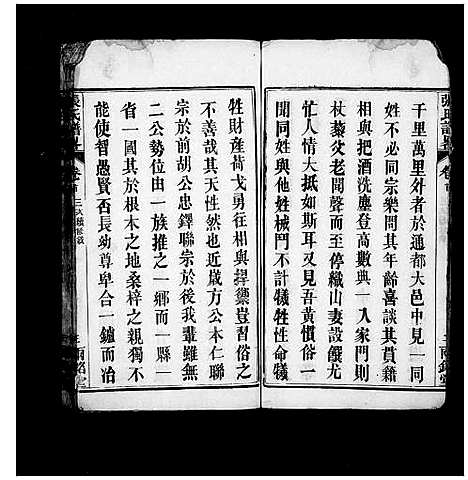 千里萬里外者於通都大邑中見一同
姓不必同宗樂問其年齡喜談其貫籍
相與把酒洗塵登高數典一入家門則
杖藜父老聞聲而至停織山妻設饌尤
忙人情大抵如斯耳又見吾黃慣俗一
聞同姓與他姓械鬥不計犧牲性命犧
牲財產荷戈勇往相與捍禦豈習俗之
不善哉其天性然也近歲方公本仁聯
宗於前胡公忠鐸聯宗於後我輩雖無
二公勢位由一族推之一鄉而一縣一
省一國其於根木之地桑梓之親獨不
能使智愚賢否長幼尊卑合一鑪而冶
張氏譜
卷首
三